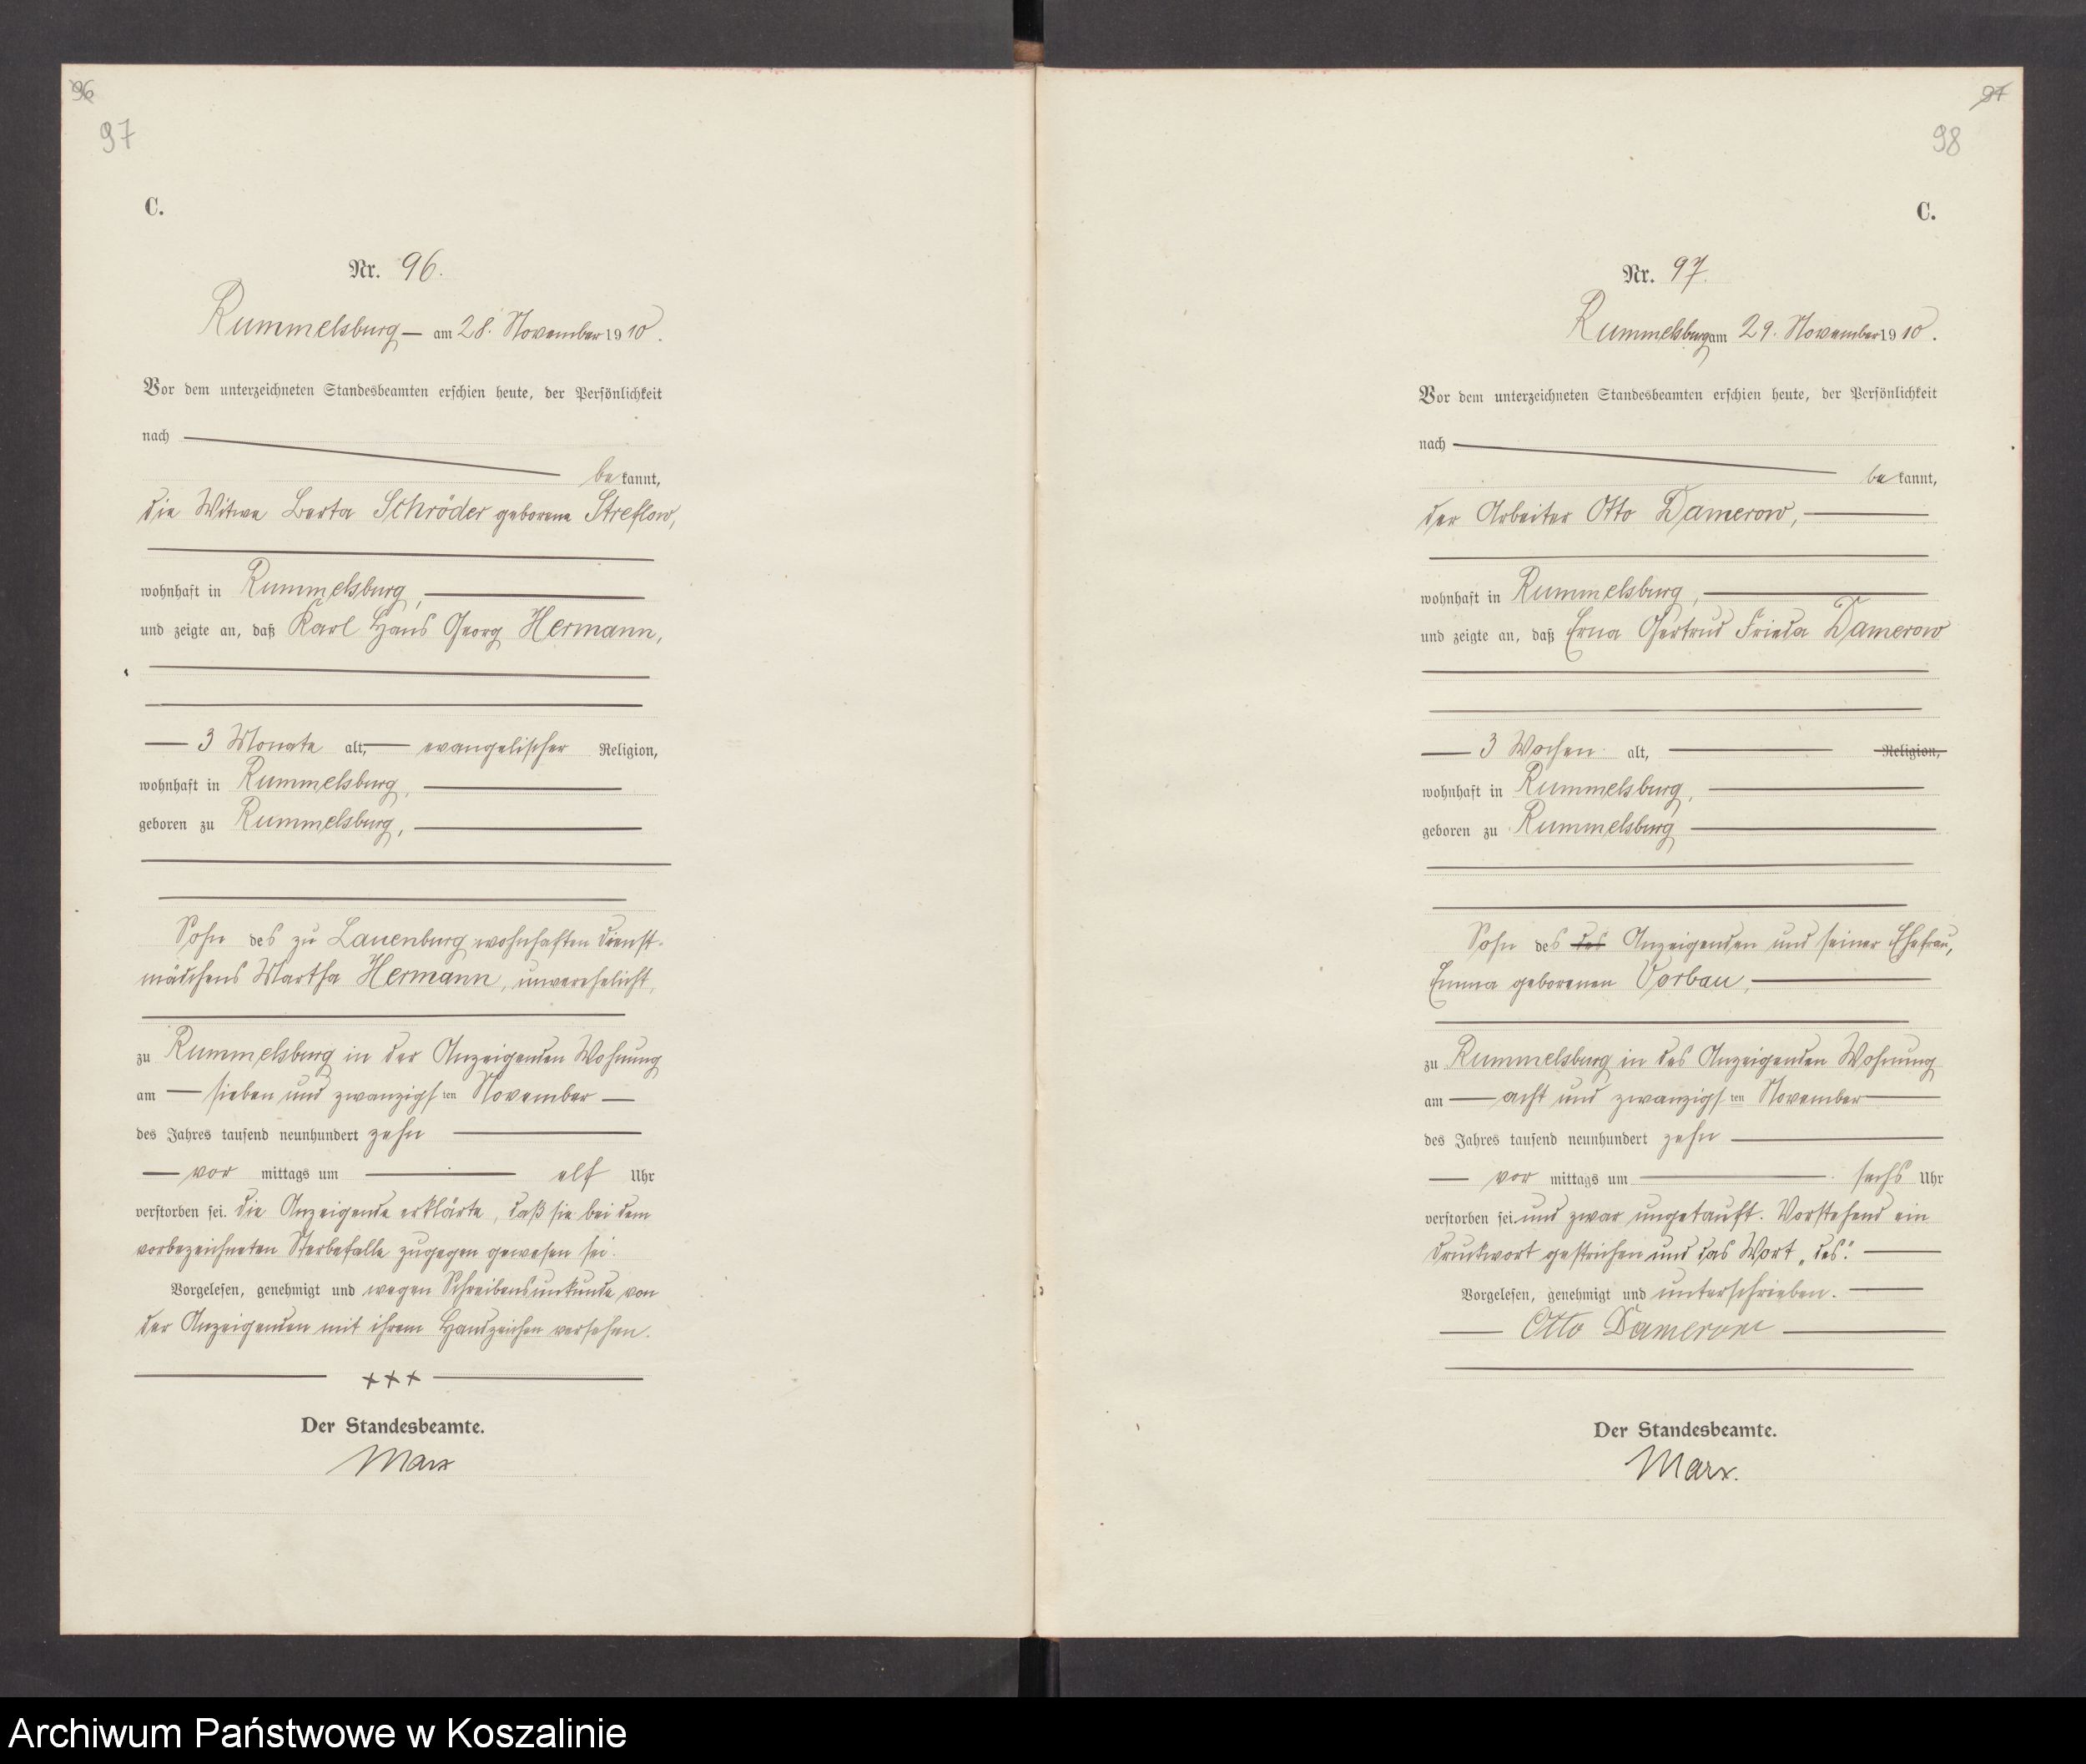 96
97
C.
Nr. 96.
Rummelsburg am 28. November 1910.
Vor dem unterzeichneten Standesbeamten erschien heute, der Persönlichkeit
nach
bekannt,
die Witwe Berta Schröder geborene Streflow,
wohnhaft in Rummelsburg,
und zeigte an, daß Karl Hans Georg Hermann,
3 Monate alt, evangelischer Religion,
wohnhaft in Rummelsburg,
geboren zu Rummelsburg,
Sohn des zu Lauenburg wohnhaften Dienst-
mädchens Martha Hermann, unverehelicht,
zu Rummelsburg in der Anzeigenden Wohnung
am sieben und zwanzigsten November
des Jahres tausend neunhundert zehn
vor mittags um elf Uhr
verstorben sei. Die Anzeigende erklärte, daß sie bei dem
vorbezeichneten Sterbefalle zugegen gewesen sei.
Vorgelesen, genehmigt und wegen Schreibensunkunde von
der Anzeigenden mit ihrem Handzeichen versehen.
+++
Der Standesbeamte.
Marx
97
98
C.
Nr. 97.
Rummelsburg am 29. November 1910.
Vor dem unterzeichneten Standesbeamten erschien heute, der Persönlichkeit
nach
bekannt,
der Arbeiter Otto Damerow,
wohnhaft in Rummelsburg,
und zeigte an, daß Erna Gertrud Frieda Damerow
3 Wochen alt, Religion,
wohnhaft in Rummelsburg,
geboren zu Rummelsburg
Sohn des des Anzeigenden und seiner Ehefrau,
Emma geborenen Vorbau,
zu Rummelsburg in des Anzeigenden Wohnung
am acht und zwanzigsten November
des Jahres tausend neunhundert zehn
vor mittags um sechs Uhr
verstorben sei und zwar ungetauft. Vorstehend ein
Druckwort gestrichen und das Wort „des".
Vorgelesen, genehmigt und unterschrieben.
Otto Damerow
Der Standesbeamte.
Marx.
Archiwum Państwowe w Koszalinie